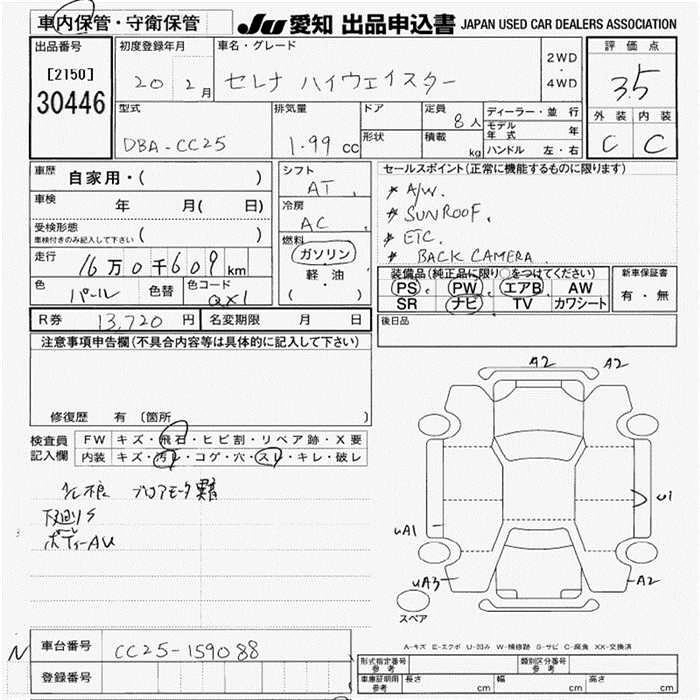 車内保管・守衛保管
JU 愛知 出品申込書 JAPAN USED CAR DEALERS ASSOCIATION
出品番号
[2150]
30446
初度登録年月
20 2月
車名・グレード
セレナ ハイウェイスター
2WD
・
4WD
評価点
3.5
外装 内装
C C
型式
DBA-CC25
排気量
1.99 cc
ドア
形状
定員
8人
積載
kg
ディーラー・並行
モデル年式 年
ハンドル 左・右
車歴
自家用・( )
車検
年 月( 日)
受検形態
車検付きのみ記入して下さい ( )
走行
16万0千609km
色
パール
色替
色コード
QX1
シフト
AT
冷房
AC
燃料
ガソリン
軽・油
( ・ )
セールスポイント(正常に機能するものに限ります)
* A/W.
* SUNROOF.
* ETC.
* BACK CAMERA
装備品(純正品に限り○をつけてください)
PS PW エアB AW
SR ナビ TV カワシート
新車保証書
有・無
後日品
R券 13,720 円 名変期限 月 日
注意事項申告欄(不具合内容等は具体的に記入して下さい)
修復歴 有 (箇所 )
検査員
記入欄
FW キズ・飛石・ヒビ割・リペア跡・X要
内装 キズ・汚レ・コゲ・穴・スレ・キレ・破レ
ブロアモータ異音
下廻りS
ボディーAU
A2 A2
U1
UA1
UA3 A2
スペア
A-キズ E-エクボ U-凹み W-補修跡 S-サビ C-腐食 XX-交換済
N
車台番号
CC25-159088
登録番号
形式指定番号
参考
類別区分番号
参考
車庫証明用
参考
長さ cm 幅 cm 高さ cm